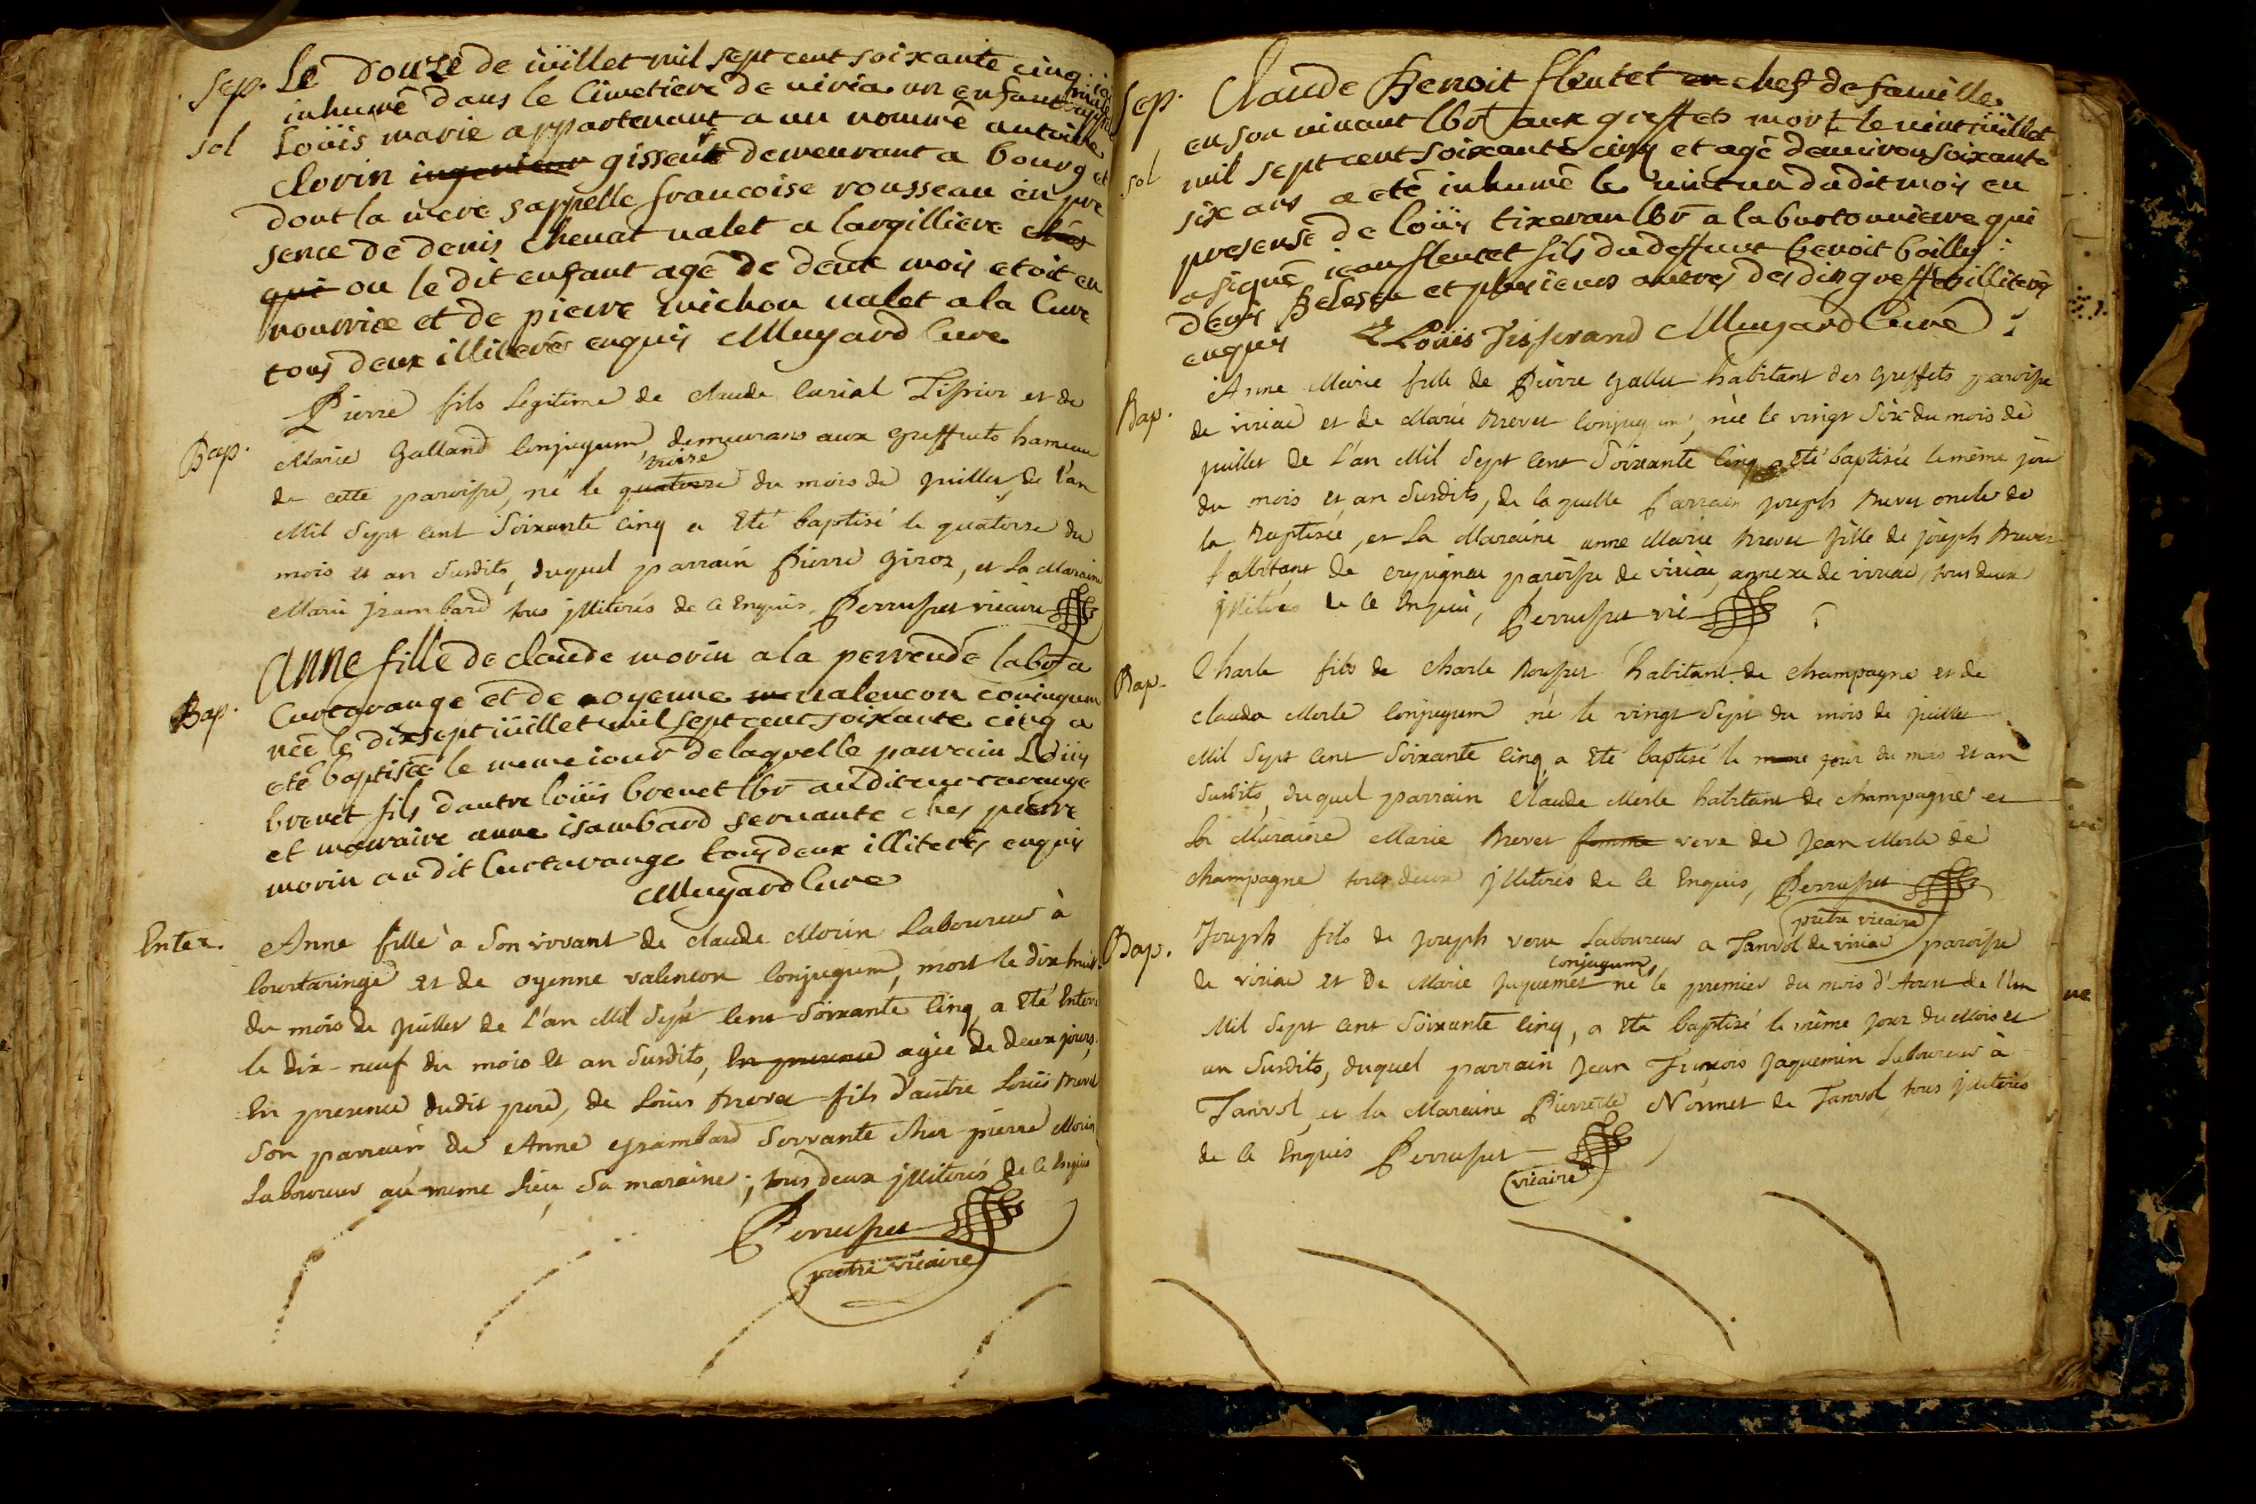 Sep. Le douze de iüillet mil sept cent soixante cinq iai
inhumé dans le Cimetiere de viria un enfant
sol Loüis marie appartenant a un nommé antoine
Clorin ingenieur gisseur demeurant a bourg et
dont la mere sappelle francoise rousseau en pre
sence de denis Chenat valet a largilliere ches
qui ou le dit enfant agé de deux mois etoit en
nourrice et de pierre michon valet a la Cure
tous deux illiterés enquis Muyard Cure
Pierre fils Legitime de claude Curial Tissier et de
Bap. Marie Galland Conjugum, demeurans aux Greffets hameau
treize
de cette paroisse, né le quatorze du mois de juillet de l'an
Mil Sept cent Soixante Cinq a Eté baptisé le quatorze du
mois et an Susdits, duquel parrain Pierre Giroz, et La Maraine
Marie jzambard tous jlliterés de Ce Enquis Perrusset vicaire
Anne fille de claude morin a la perrende labr a
Bap. Curtarange et de oyenne valencon coniugum
née le dixsept iüillet mil sept cent soixante cinq a
eté baptisée le meme iour de laquelle parrain Loüis
brevet fils dautre loüis brevet lbr audit curtarange
et marraine anne isambard servante ches pierre
morin au dit Curtarange tous deux illiterés enquis
Muyard Cure
Enter. Anne fille à Son vivant de Claude Morin Laboureur à
Courtaringe et de oyenne valencon Conjugum, mort le dix huit
du mois de juillet de L'an Mil Sept Cent Soixante Cinq, a Eté Enterré
le dix-neuf du mois et an Susdits, En presence agée de deux jours,
En presence dudit pere, de Louis Brevet fils d'autre Louis Brevet
Son parrain de Anne jsambard Servante chez pierre Morin
Laboureur au meme Lieu, Sa maraine; tous deux jlliterés de Ce Enquis
Perrusset
pretre vicaire
Sep. Claude Benoit fleutet en chef de famille
en son vivant lbr aux greffets mort le vint iüillet
sol mil sept cent soixante cinq et agé denviron soixante
six ans a eté inhumé le vint un du dit mois en
presense de loüis tixeran lbr a la burtonniere qui
a signé iean fleutet fils du deffunt benoit bailly
denis et plusieurs autres des dis greffets illiterés
enquis Loüis Tisserand Muyard Curé
Anne Marie fille de Pierre Gallet habitant des Greffets paroisse
Bap. de viriac et de Marie Brevet Conjugum, née le vingt Six du mois de
juillet de L'an Mil Sept Cent Soixante Cinq a Eté baptisée le même jour
du mois et an Susdits, de laquelle Parrain joseph Brevet oncle de
la Baptisée, et La Maraine anne Marie Brevet fille de joseph Brevet
habitant de paroisse de viriac, annexe de viriac, tous deux
jlliterés de Ce Enquis, Perrusset vic
Bap. Charle fils de Charle Rousset habitant de Champagne et de
Clauda Merle Conjugum né le vingt Sept du mois de juillet
Mil Sept Cent Soixante Cinq a Eté baptisé le meme jour du mois et an
Susdits, duquel parrain Claude Merle habitant de Champagne et
La Maraine Marie Brevet femme veve de Jean Merle de
Champagne tous deux jlliterés de Ce Enquis, Perrusset
prêtre vicaire
Bap. Joseph fils de joseph veru Laboureur a Tanvol de viriac paroisse
Conjugum
de viriac et De Marie Juquemet né le premier du mois d'Aoust de l'an
Mil Sept Cent Soixante Cinq, a Eté baptizé le même jour du Mois et
an Susdits, duquel parrain Jean François jaquemin Laboureur à
Tanvol, et la Maraine Pierrette Nonnet de Tanvol tous jlliterés
de Ce Enquis Perrusset
vicaire